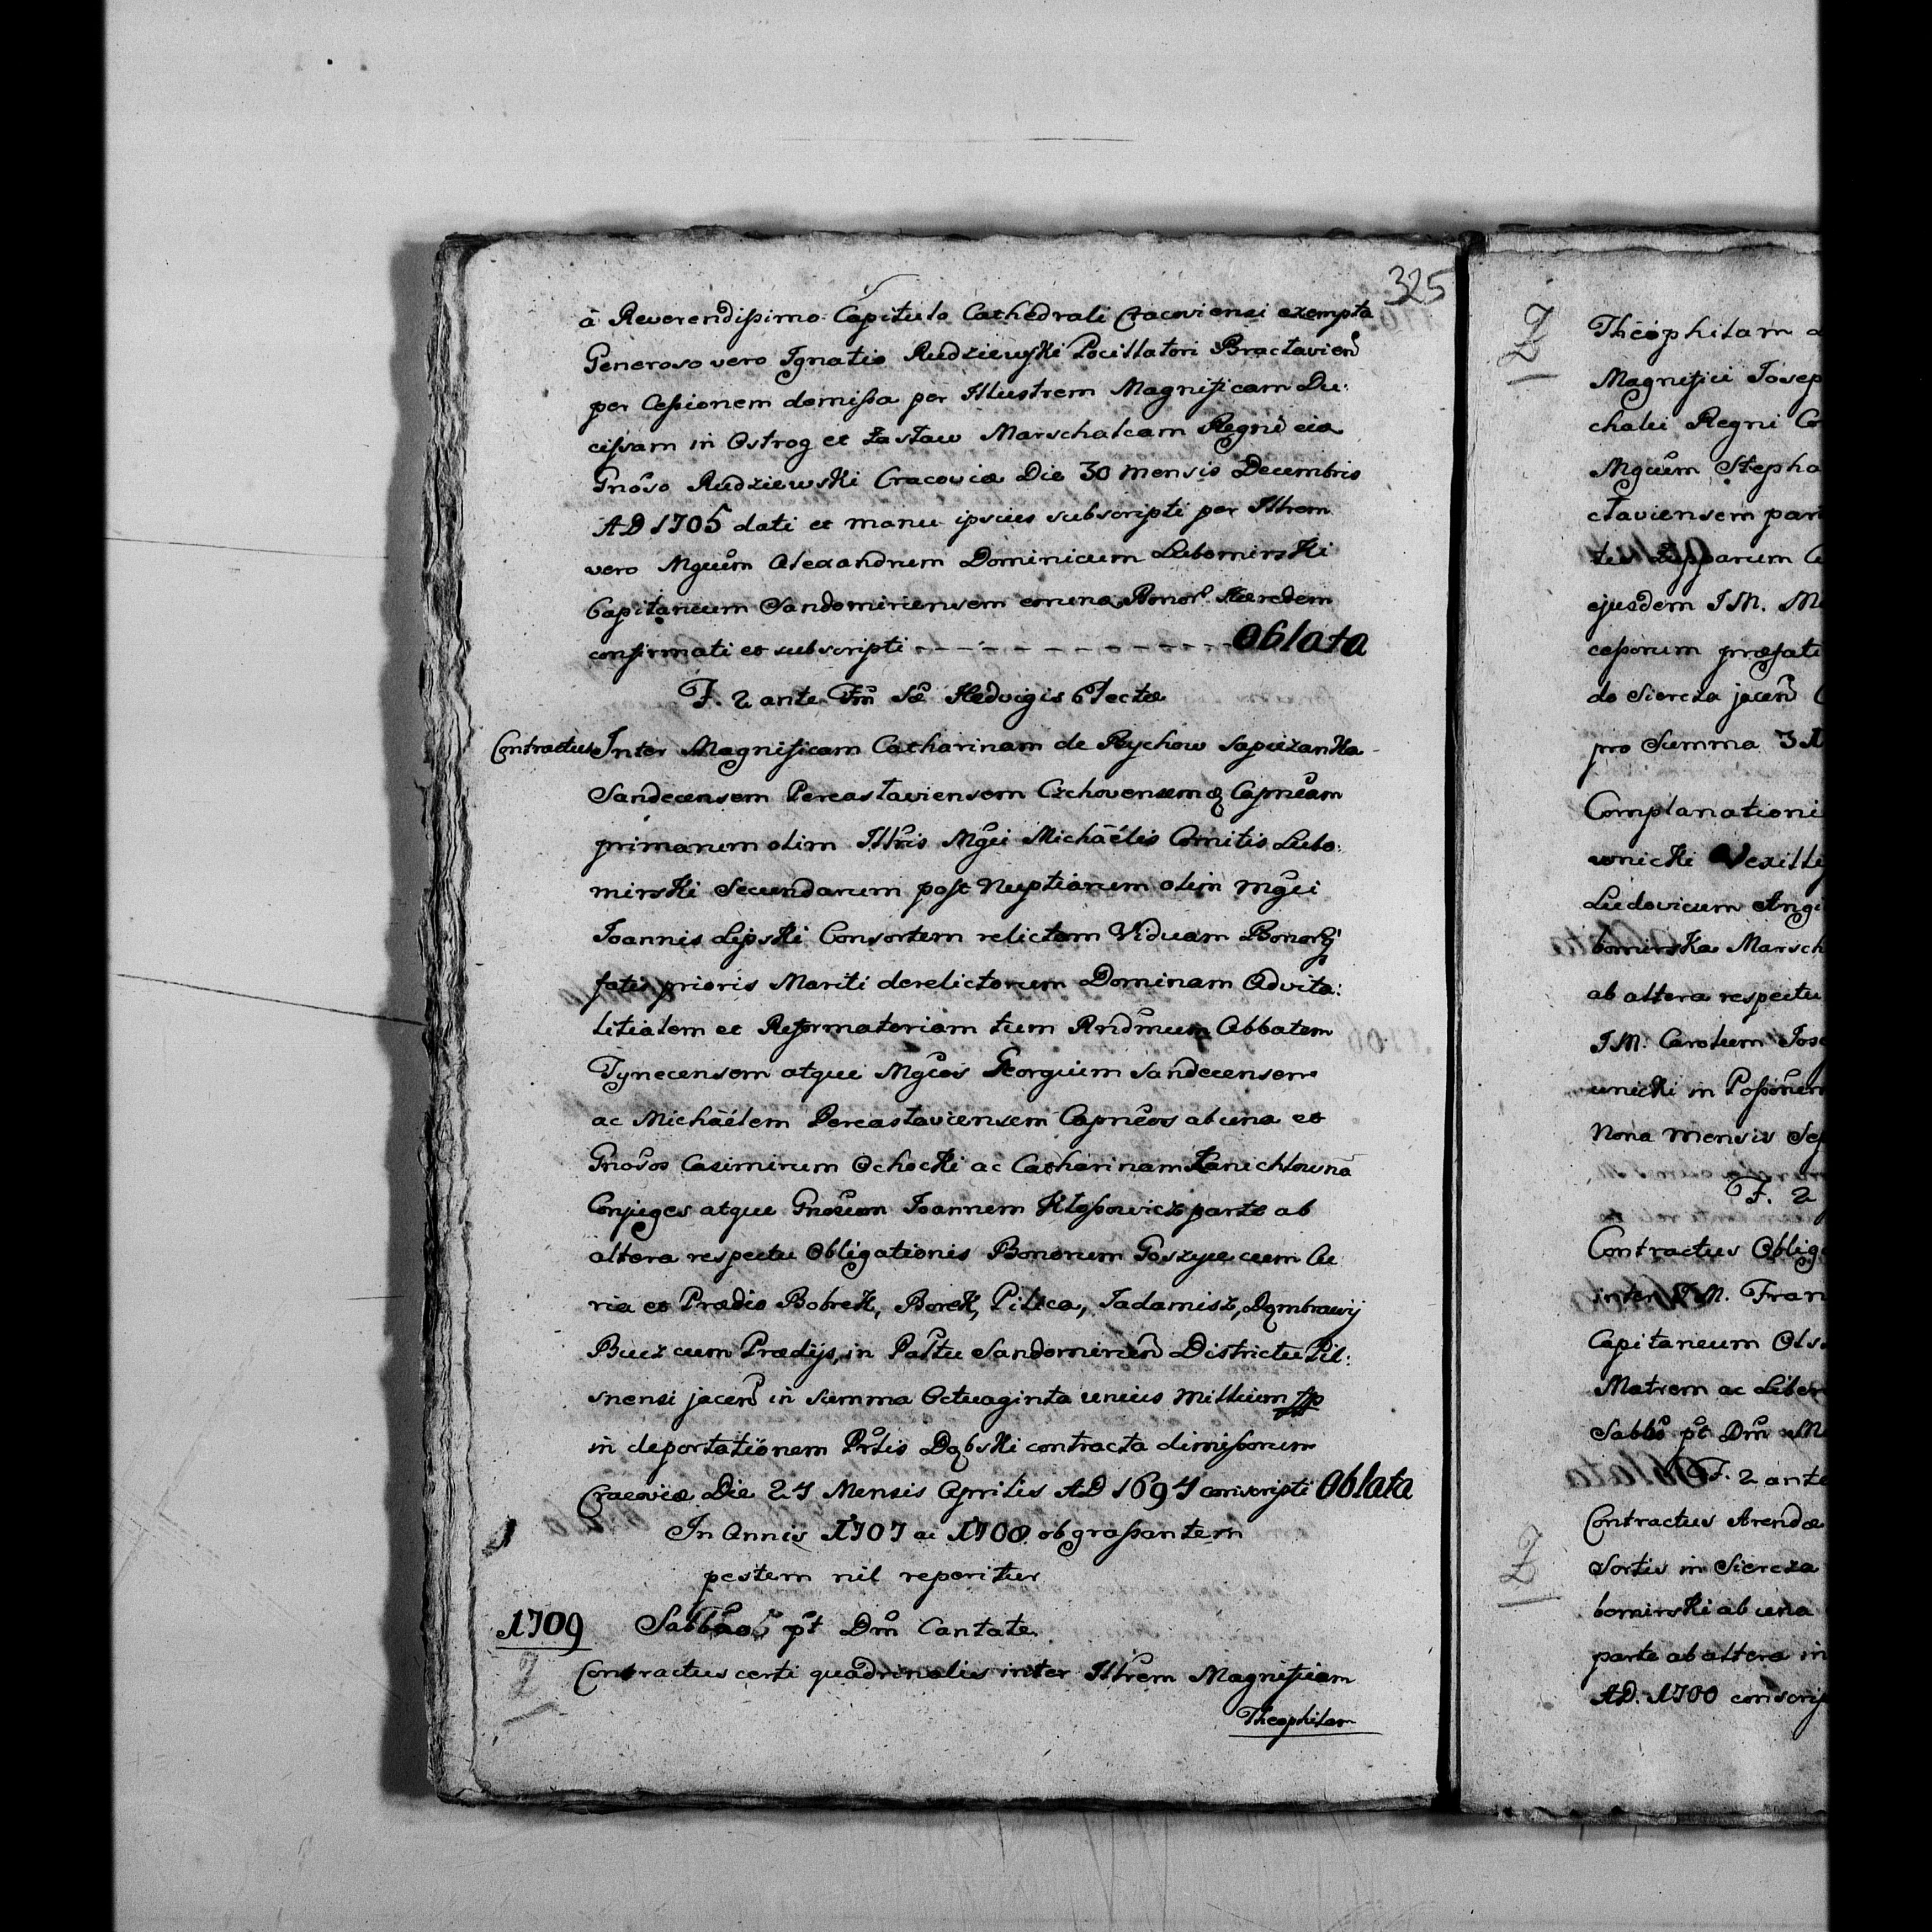 325
à Reverendissimo Capitulo Cathedrali Cracoviensi exempta
Generoso vero Ignatio Rudziewski Pocillatori Bractavien̄
per Cessionem domissa per Illustrem Magnificam Du:
cissam in Ostrog et Zasław Marschalcam Regni eia
Gnoso Rudziewski Cracoviæ Die 30 Mensis Decembris
AD 1705 dati et manu ipsius subscripti per Illrem
vero Mgcum Alexandrum Dominicum Lubomirski
Capitaneum Sandomiriensem Bonor. Hæredem
confirmati et subscripti - - - - - - - - - - Oblata
F. 2 ante Fm̄ Sæ Hedvigis Electæ
Contractus Inter Magnificam Catharinam de Rychow Sapiezanka
Sandecensem Pereaslaviensem Czchovensemq Capneam
primarum olim Illris Mgci Michaëlis Comitis Lubo:
mirski Secundarum post Nuptiarum olim Mgci
Joannis Lipski Consortem relictam Viduam Bonorū
fatis prioris Mariti derelictorum Dominam Advita:
litialem et Reformatoriam tum Rndmum Abbatem
Tynecensem atque Mgcos Georgium Sandecensem
ac Michaëlem Pereaslaviensem Capneos ab una et
Gnosos Casimirum Ochocki ac Catharinam Łanichowna
Conjuges atque Gnosum Joannem Kłossowicz parte ab
altera respectu Obligationis Bonorum Goszyce cum Cu
ria et Prædio Bobrek, Borek, Pilica, Jadamisz, Dąmbrawy
Bucz cum Prædijs, in Pałtu Sandomirien̄ Districtu Pil:
snensi jacen̄ in Summa Octuaginta unius Millium ffp
in deportationem Prtis Dąbski contracta dimissorum
Cracoviæ Die 24 Mensis Aprilis AD 1694 conscripti Oblata
In Annis 1707 ac 1708 ob grassantem
pestem nil reperitur
1709 Sabbao pt Dm̄ Cantate
2 Contractus certi quadrinalis inter Illrem Magnificam
Theophilam
Z Theophilam
Magnifici Josep
chalci Regni Co
Mgcum Stepha
ctaviensem par
ejusdem I M. M
cessorum præfati
do Siercza jacen̄
pro Summa 3
Complanationi
wnicki Vexilli
Ludovicum Ang
bomirska Marsch
ab altera respectu
I M. Carolum Jos
unicki in Possonem
Nona Mensis Sep
F. 2
Contractus Oblig
inter I M. Fran
Capitaneum Ols
Matrem ac Liber
Sabbo pt Dm̄
F. 2 ante
Z Contractus Arendæ
Sortis in Siercza
bomirski ab una
parte ab altera in
AD. 1700 conscrip